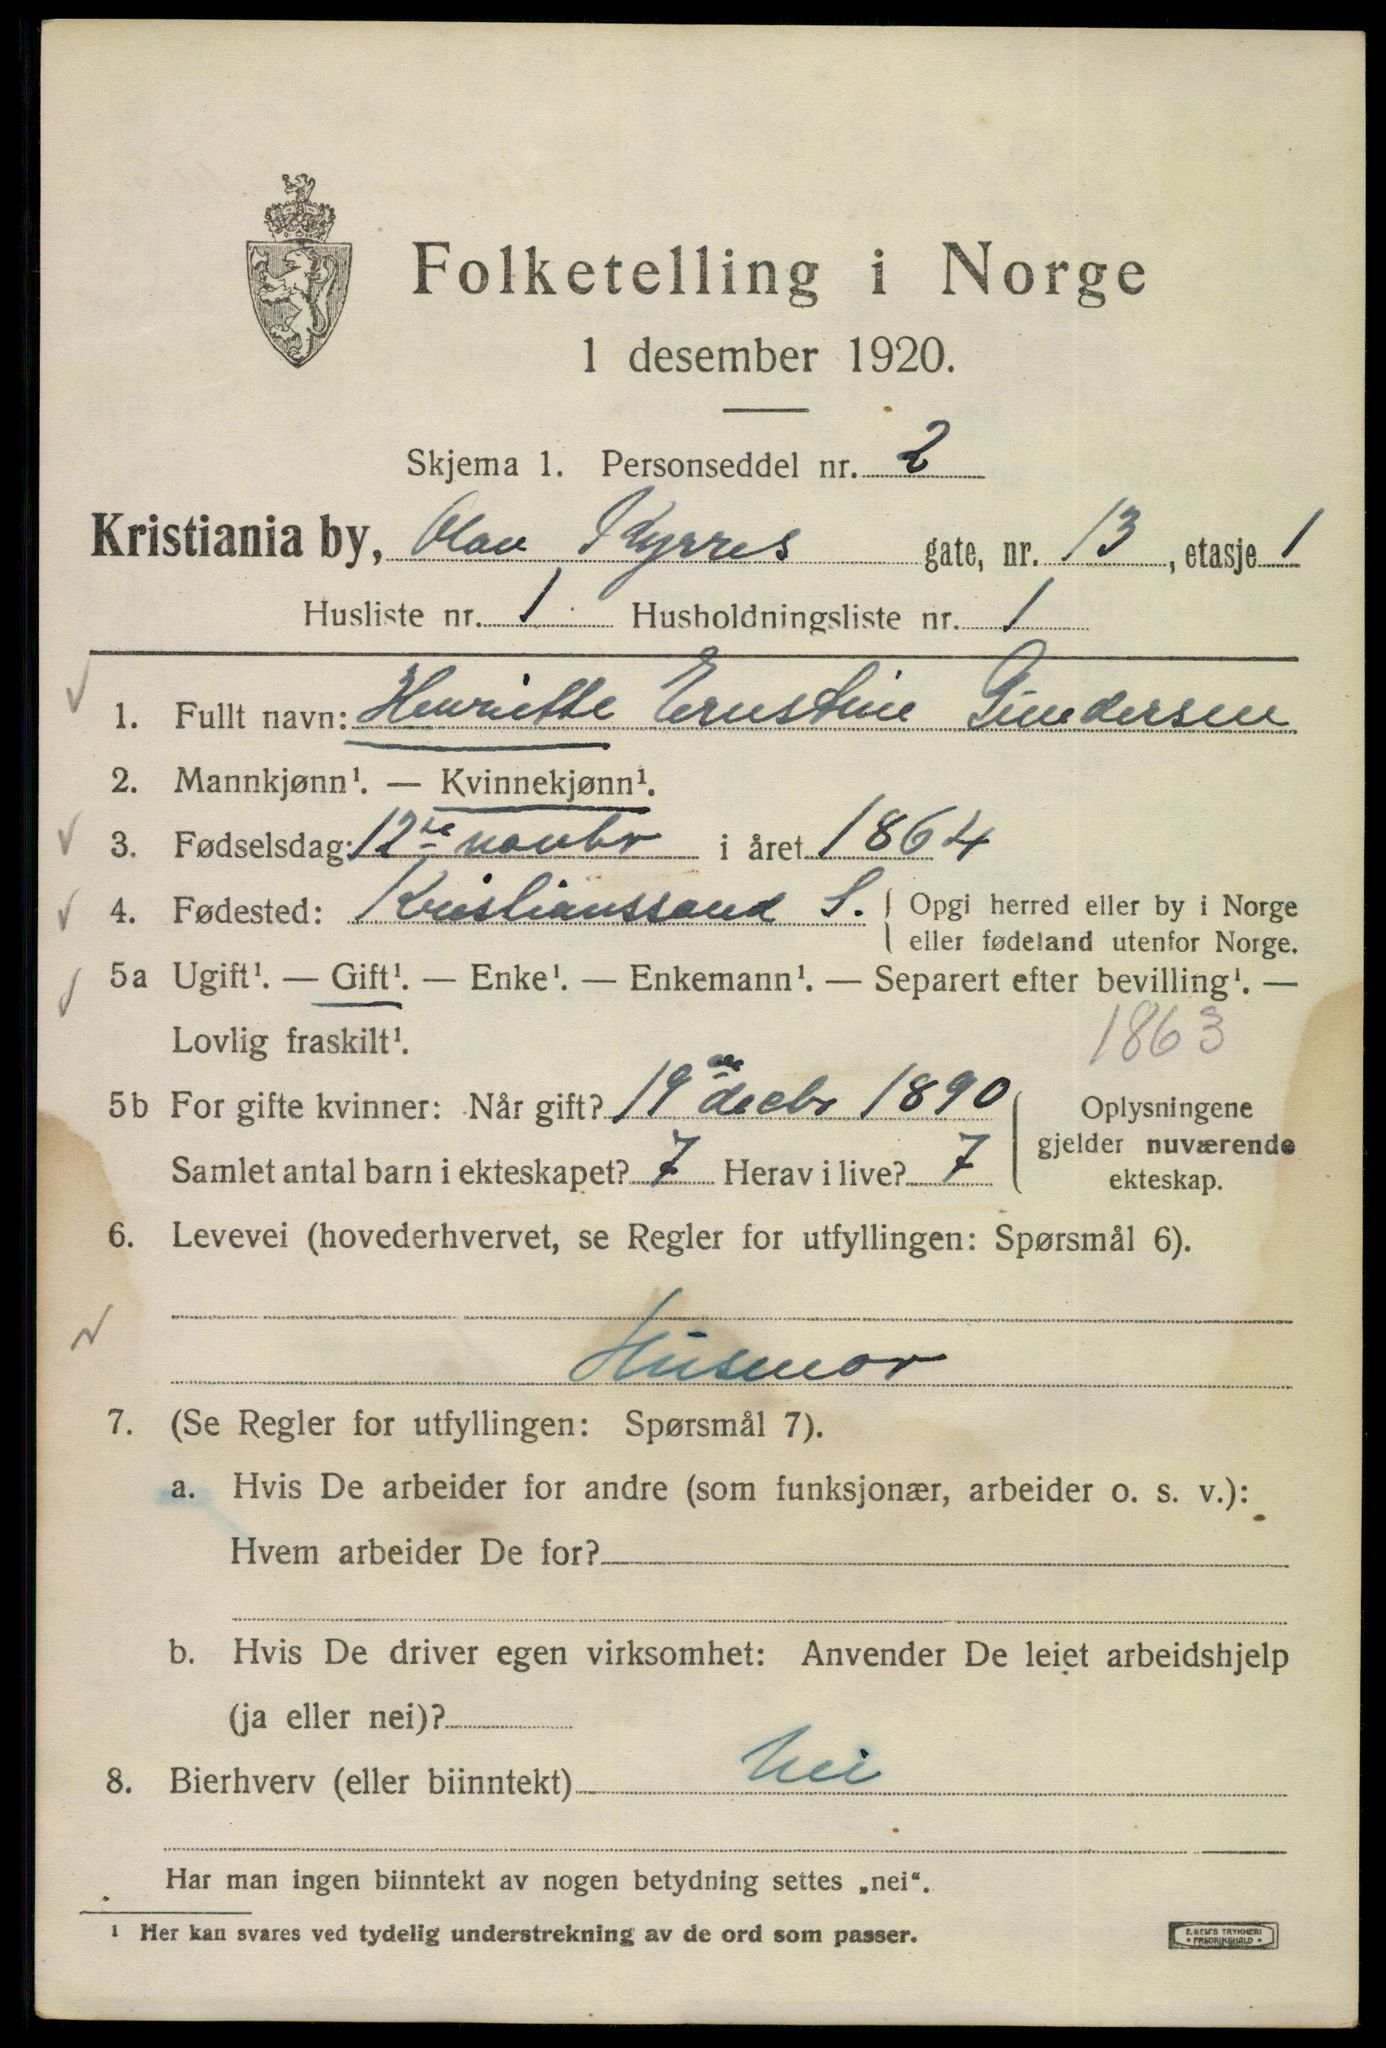 Folketelling i Norge
1 desember 1920.
Skjema 1. Personseddel nr. 2
Kristiania by, Olav Kyrres gate, nr. 13, etasje 1
Husliste nr. 1 Husholdningsliste nr. 1
1. Fullt navn: Henriette Ernstine Gundersen
2. Mannkjønn¹. — Kvinnekjønn¹.
3. Fødselsdag: 12te novbr i året 1864
4. Fødested: Kristianssand S. { Opgi herred eller by i Norge
eller fødeland utenfor Norge.
5a Ugift¹. — Gift¹. — Enke¹. — Enkemann¹. — Separert efter bevilling¹. —
Lovlig fraskilt¹. 1863
5b For gifte kvinner: Når gift? 19de decbr 1890
Samlet antal barn i ekteskapet? 7 Herav i live? 7
{ Oplysningene
gjelder nuværende
ekteskap.
6. Levevei (hovederhvervet, se Regler for utfyllingen: Spørsmål 6).
Husmor
7. (Se Regler for utfyllingen: Spørsmål 7).
a. Hvis De arbeider for andre (som funksjonær, arbeider o. s. v.):
Hvem arbeider De for?
b. Hvis De driver egen virksomhet: Anvender De leiet arbeidshjelp
(ja eller nei)?
8. Bierhverv (eller biinntekt) Nei
Har man ingen biinntekt av nogen betydning settes „nei“.
¹ Her kan svares ved tydelig understrekning av de ord som passer.
E. SEM'S TRYKKERI
FREDRIKSHALD